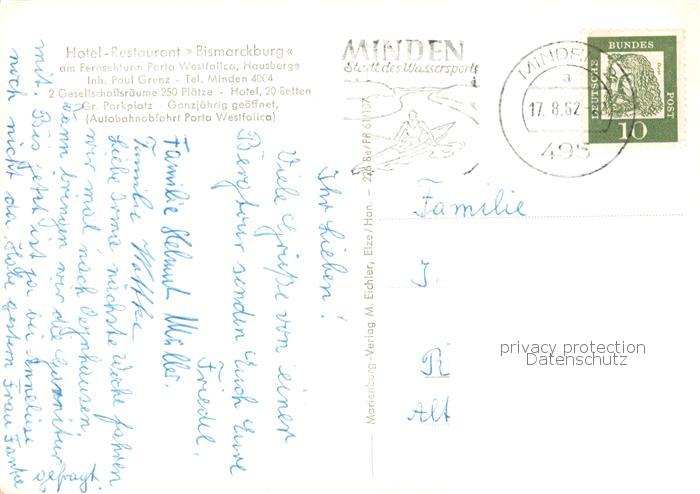 Hotel-Restaurant »Bismarckburg«
am Fernsehturm Porta Westfalica, Hausberge
Inh. Paul Grenz · Tel. Minden 4004
2 Gesellschaftsräume 250 Plätze · Hotel, 20 Betten
Gr. Parkplatz · Ganzjährig geöffnet,
(Autobahnabfahrt Porta Westfalica)
MINDEN
Stadt des Wassersports
MINDEN
a
17.8.62
495
DEUTSCHE
BUNDES
POST
10
Ihr Lieben!
Viele Grüße von einer
Bergtour senden Euch Eure
Friedel.
Familie Helmut Müller.
Familie
Liebe Erna nächste Woche fahren
wir mal nach Oeynhausen
dann bringen wir die Garnitur
mit. Bis jetzt ist ja bei Anneliese
noch nicht da, Habe gestern Frau
gefragt.
Marienburg-Verlag M. Eichler, Elze/Han. —
Familie
J.
Alt
privacy protection
Datenschutz